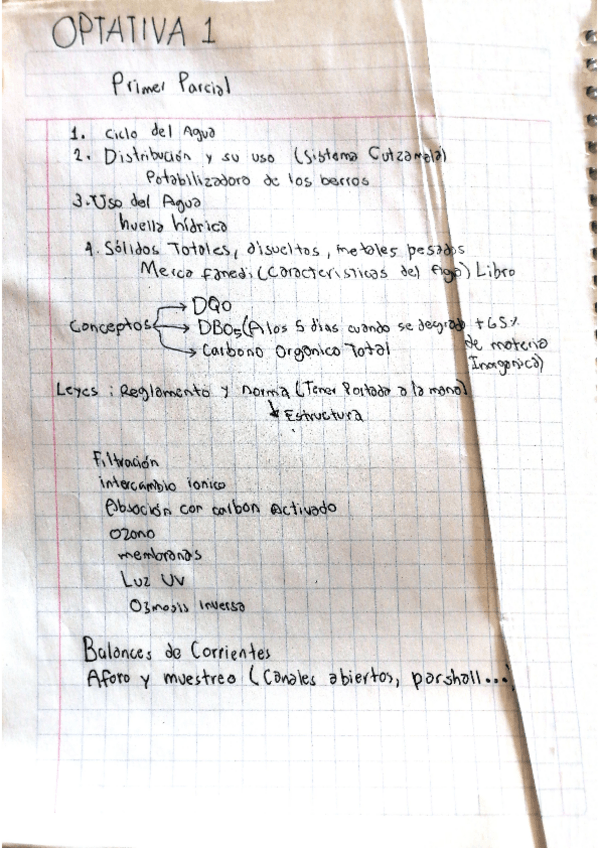 OPTATIVA 1
Primer Parcial
1. Ciclo del Agua
2. Distribución y su uso (Sistema Cutzamala)
Potabilizadora de los berros
3. Uso del Agua
huella hídrica
4. Sólidos Totales, disueltos, metales pesados
Merca fanedi (Caracteristicas del Agua) Libro
Conceptos
DQO
DBO5 (A los 5 dias cuando se degrada +65%
de materia
Inorganica)
Carbono Organico Total
Leyes: Reglamento y norma (Tener Portada a la mano)
Estructura
Filtración
intercambio ionico
Absoción con carbon activado
Ozono
membranas
Luz UV
Osmosis inversa
Balances de Corrientes
Aforo y muestreo (Canales abiertos, parshall...)